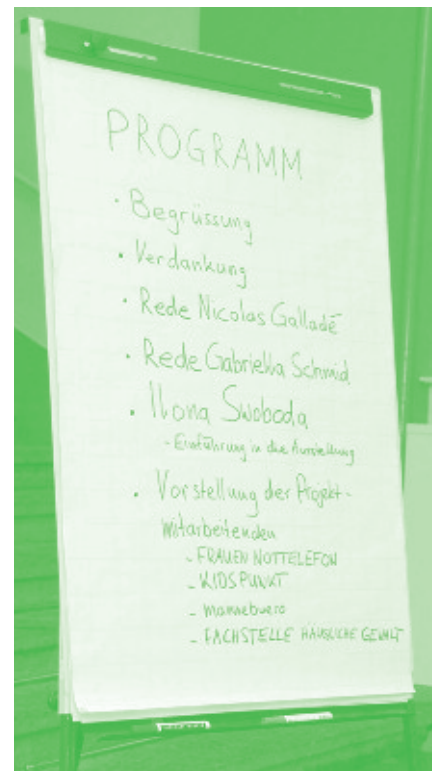 PROGRAMM
· Begrüssung
· Verdankung
· Rede Nicolas Galladé
· Rede Gabriella Schmid
· Ilona Swoboda
- Einführung in die Ausstellung
· Vorstellung der Projekt-
mitarbeitenden
- FRAUEN NOTTELEFON
- KIDSPUNKT
- mannebuero
- FACHSTELLE HÄUSLICHE GEWALT